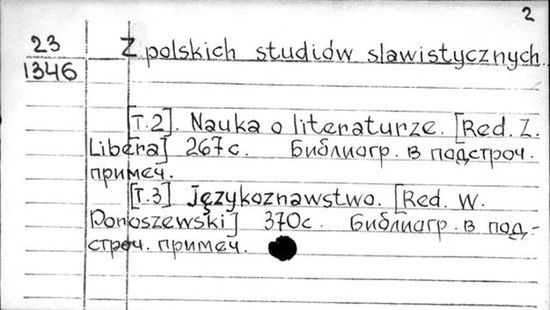 2
23
1346
Z polskich studiów slawistycznych.
[T.2]. Nauka o literaturze. [Red. Z.
Libera] 267 с. Библиогр. в подстроч.
примеч.
[T.3] Językoznawstwo. [Red. W.
Doroszewski] 370с. Библиогр. в под-
строч. примеч.